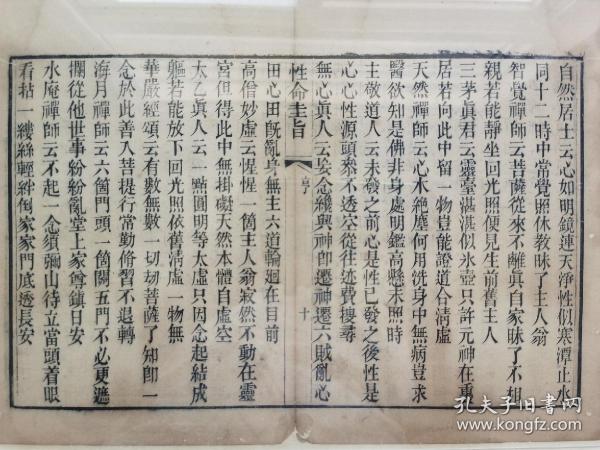 自然居士云心如明鏡連天淨性似寒潭止水
同十二時中常覺照休教昧了主人翁
智覺禪師云菩薩從來不離真自家昧了不相
親若能靜坐回光照便見生前舊主人
三茅真君云靈臺湛湛似氷壺只許元神在裏
居若向此中留一物豈能證道合清虛
天然禪師云心本絶塵何用洗身中無病豈求
醫欲知是佛非身處明鑑高懸未照時
主敬道人云未發之前心是性已發之後性是
心心性源頭叅不透空從往迹費搜尋
無心真人云妄念纔興神即遷神遷六賊亂心
性命圭旨
亨
十
田心田既亂身無主六道輪廻在目前
高僧妙虛云惺惺一箇主人翁寂然不動在靈
宮但得此中無掛礙天然本體自虛空
太乙真人云一點圓明等太虛只因念起結成
軀若能放下回光照依舊清虛一物無
華嚴經頌云有數無數一切刼菩薩了知即一
念於此善入菩提行常勤修習不退轉
海月禪師云六箇門頭一箇關五門不必更遮
攔從他世事紛紛亂堂上家尊鎮日安
水庵禪師云不起一念須彌山待立當頭着眼
看拈一縷絲輕絆倒家家門底透長安
孔夫子旧书网
www.kongfz.com